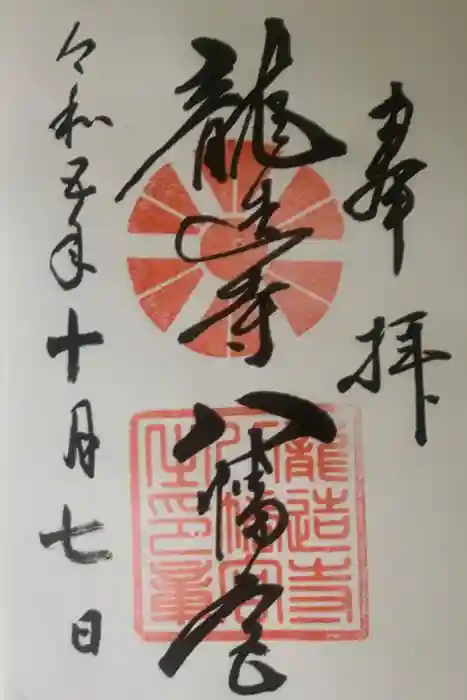 奉拝
龍造寺
八幡宮
龍造寺
八幡宮
之印章
令和五年十月七日